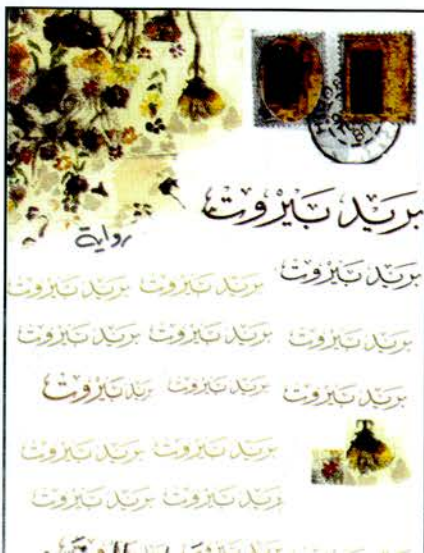 بريد بيروت
رواية
بريد بيروت
بريد بيروت بريد بيروت
بريد بيروت بريد بيروت بريد بيروت
بريد بيروت بريد بيروت بريد بيروت
بريد بيروت بريد بيروت
بريد بيروت بريد بيروت